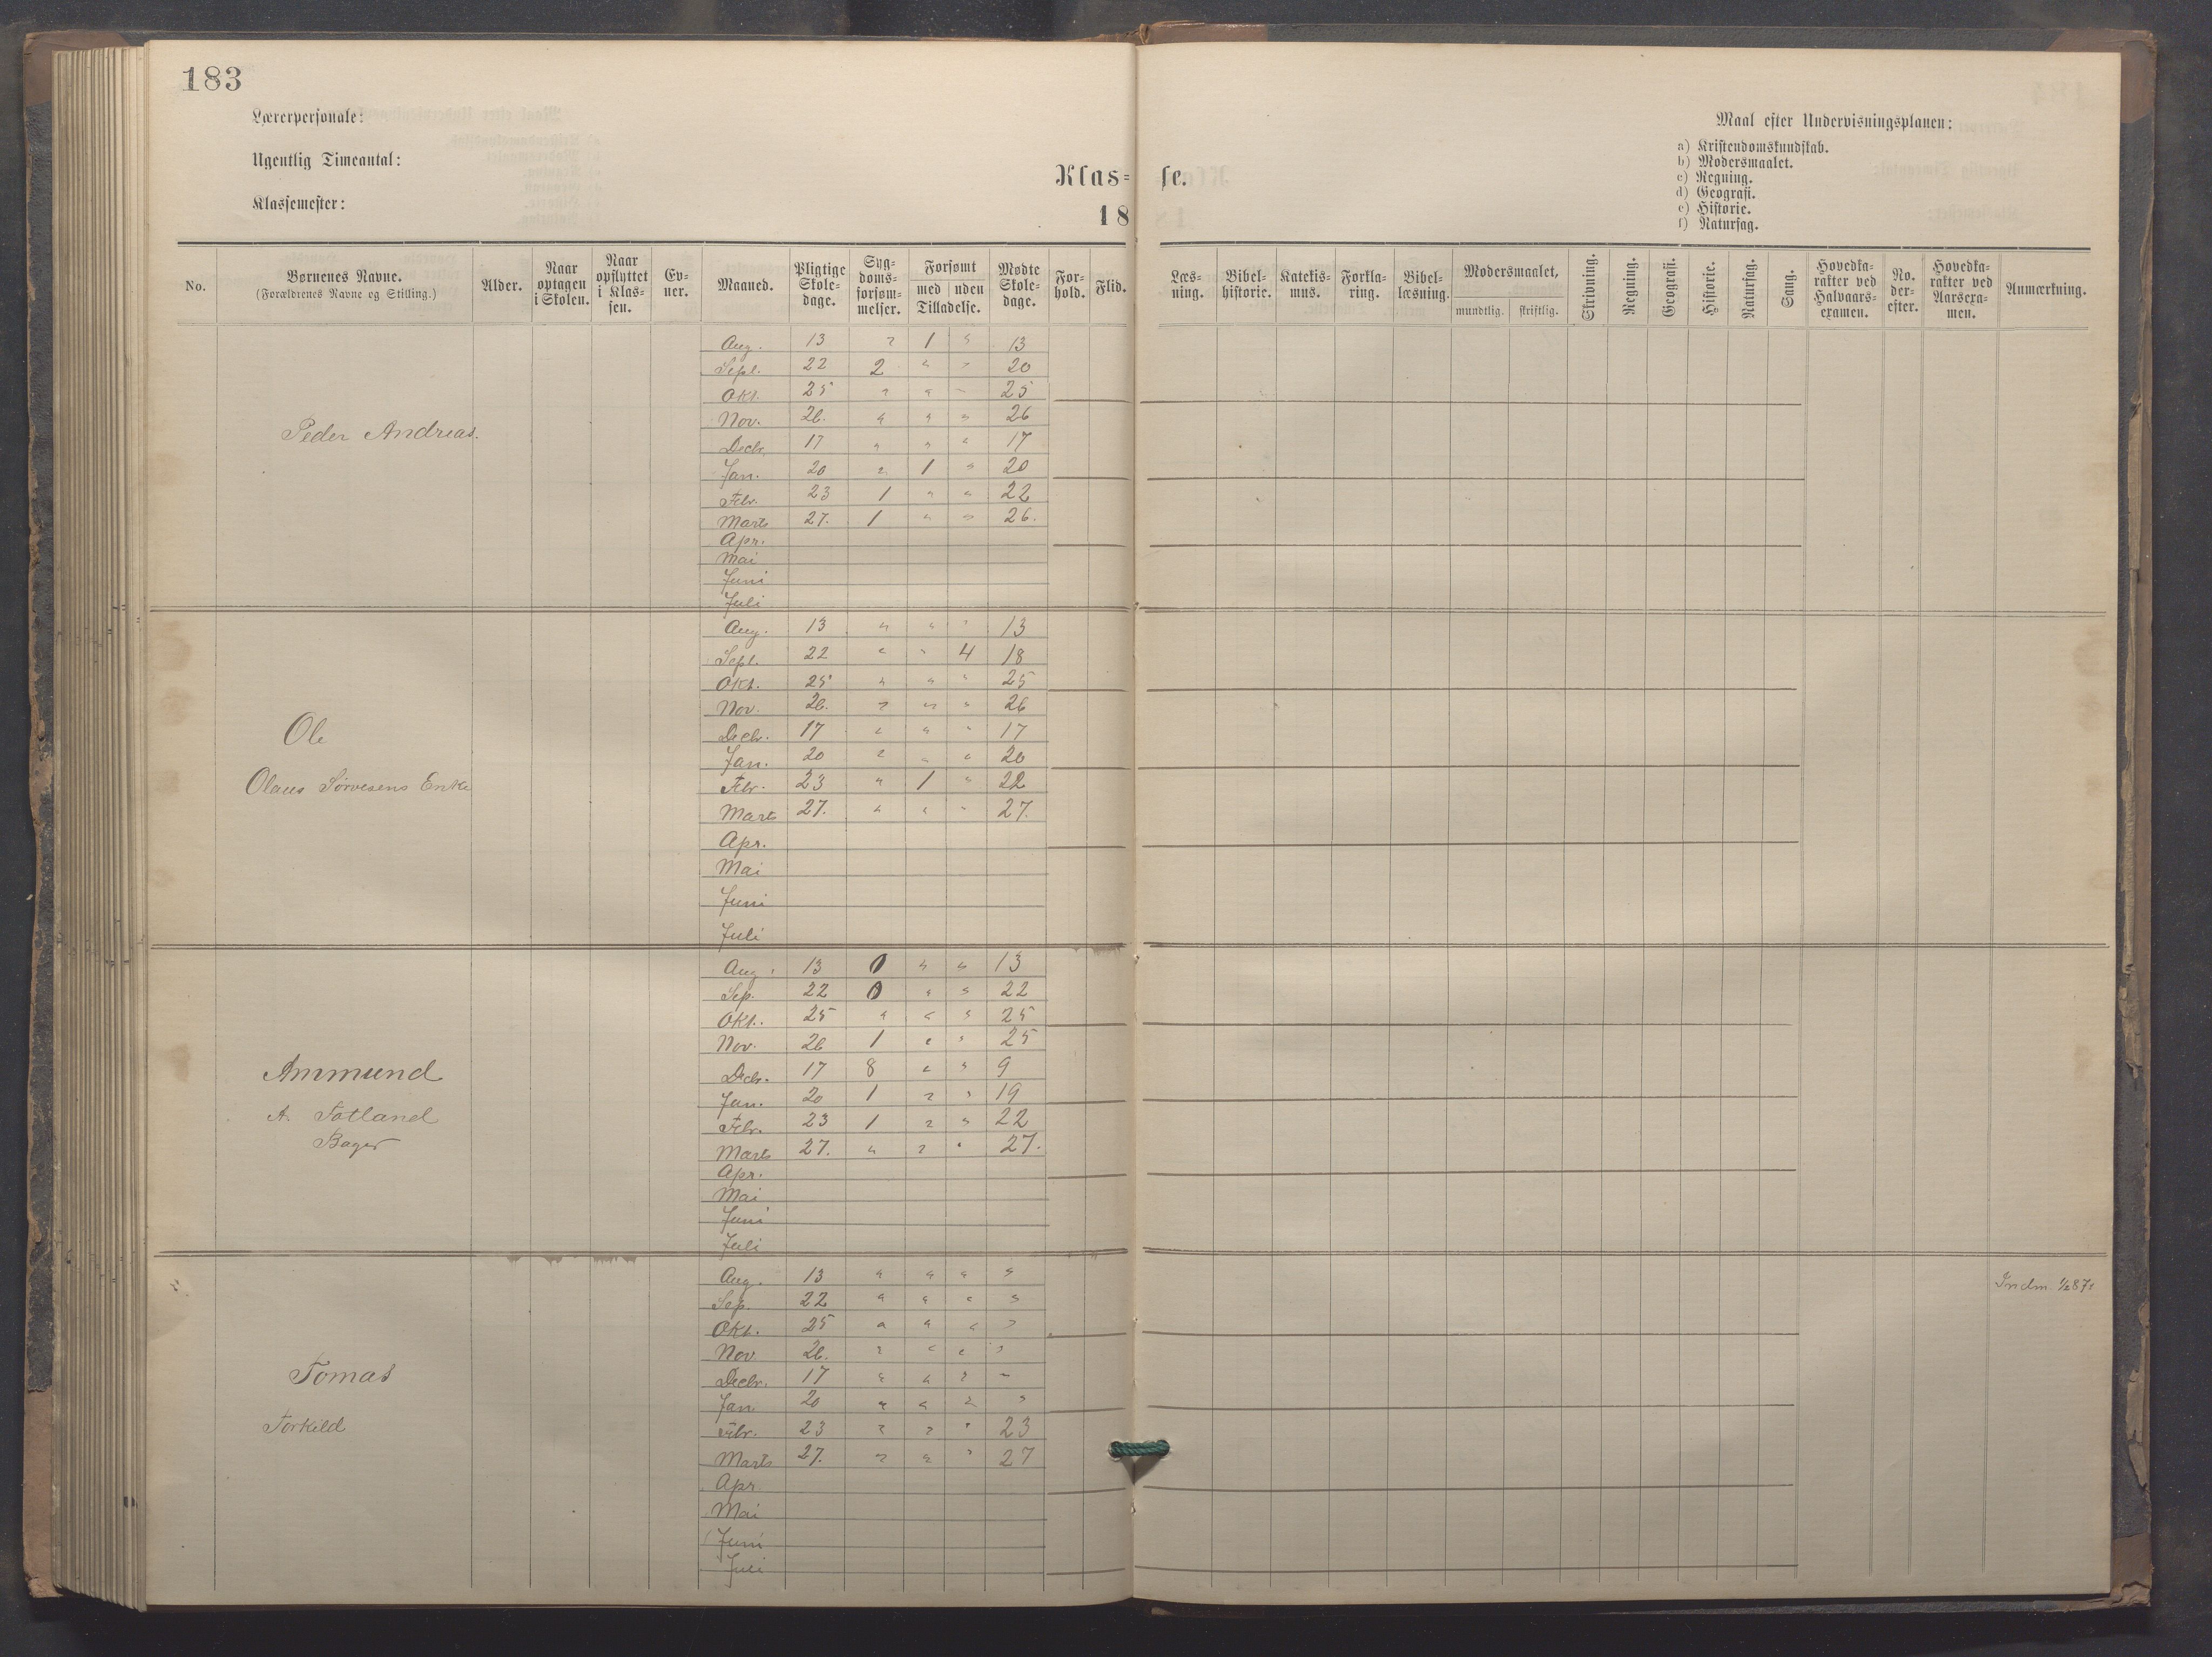 183
Lærerpersonale:
Ugentlig Timeantal:
Klassemester:
Klas= se.
18
Maal efter Undervisningsplanen:
a) Kristendomskundskab.
b) Modersmaalet.
c) Regning.
d) Geografi.
e) Historie.
f) Naturfag.
No. Børnenes Navne. (Forældrenes Navne og Stilling.) Alder. Naar optagen i Skolen. Naar opflyttet i Klas-sen. Ev-ner. Maaned. Pligtige Skole-dage. Syg-doms-forsøm-melser. Forsømt med uden Tilladelse. Mødte Skole-dage. For-hold. Flid. Læs-ning. Bibel-historie. Katekis-mus. Forkla-ring. Bibel-læsning. Modersmaalet, mundtlig. skriftlig. Skrivning. Regning. Geografi. Historie. Naturfag. Sang. Hovedka-rakter ved Halvaars-examen. No. der-efter. Hovedka-rakter ved Aarsexa-men. Anmærkning.
Peder Andreas.
Aug. 13 " 1 " 13
Sept. 22 2 " " 20
Okt. 25 " " " 25
Nov. 26. " " " 26
Decbr. 17 " " " 17
Jan. 20 " 1 " 20
Febr. 23 1 " " 22
Marts 27. 1 " " 26.
Apr.
Mai
Juni
Juli
Ole
Olaus Sørvesens Enke
Aug. 13 " " " 13
Sept. 22 " " 4 18
Okt. 25 " " " 25
Nov. 26. " " " 26
Decbr. 17 " " " 17
Jan. 20 " " " 20
Febr. 23 " 1 " 22
Marts 27. " " " 27.
Apr.
Mai
Juni
Juli
Ammund
A. Totland
Bager
Aug. 13 0 " " 13
Sep. 22 0 " " 22
Okt. 25 " " " 25
Nov. 26 1 " " 25
Decbr. 17 8 " " 9
Jan. 20 1 " " 19
Febr. 23 1 " " 22
Marts 27. " " " 27.
Apr.
Mai
Juni
Juli
Tomas
Torkild
Aug. 13 " " " "
Sep. 22 " " " "
Okt. 25 " " " "
Nov. 26. " " " "
Decbr. 17 " " " "
Jan 20 " " " "
Febr. 23 " " " 23
Marts 27. " " " 27
Apr.
Mai
Juni
Juli
Indm.